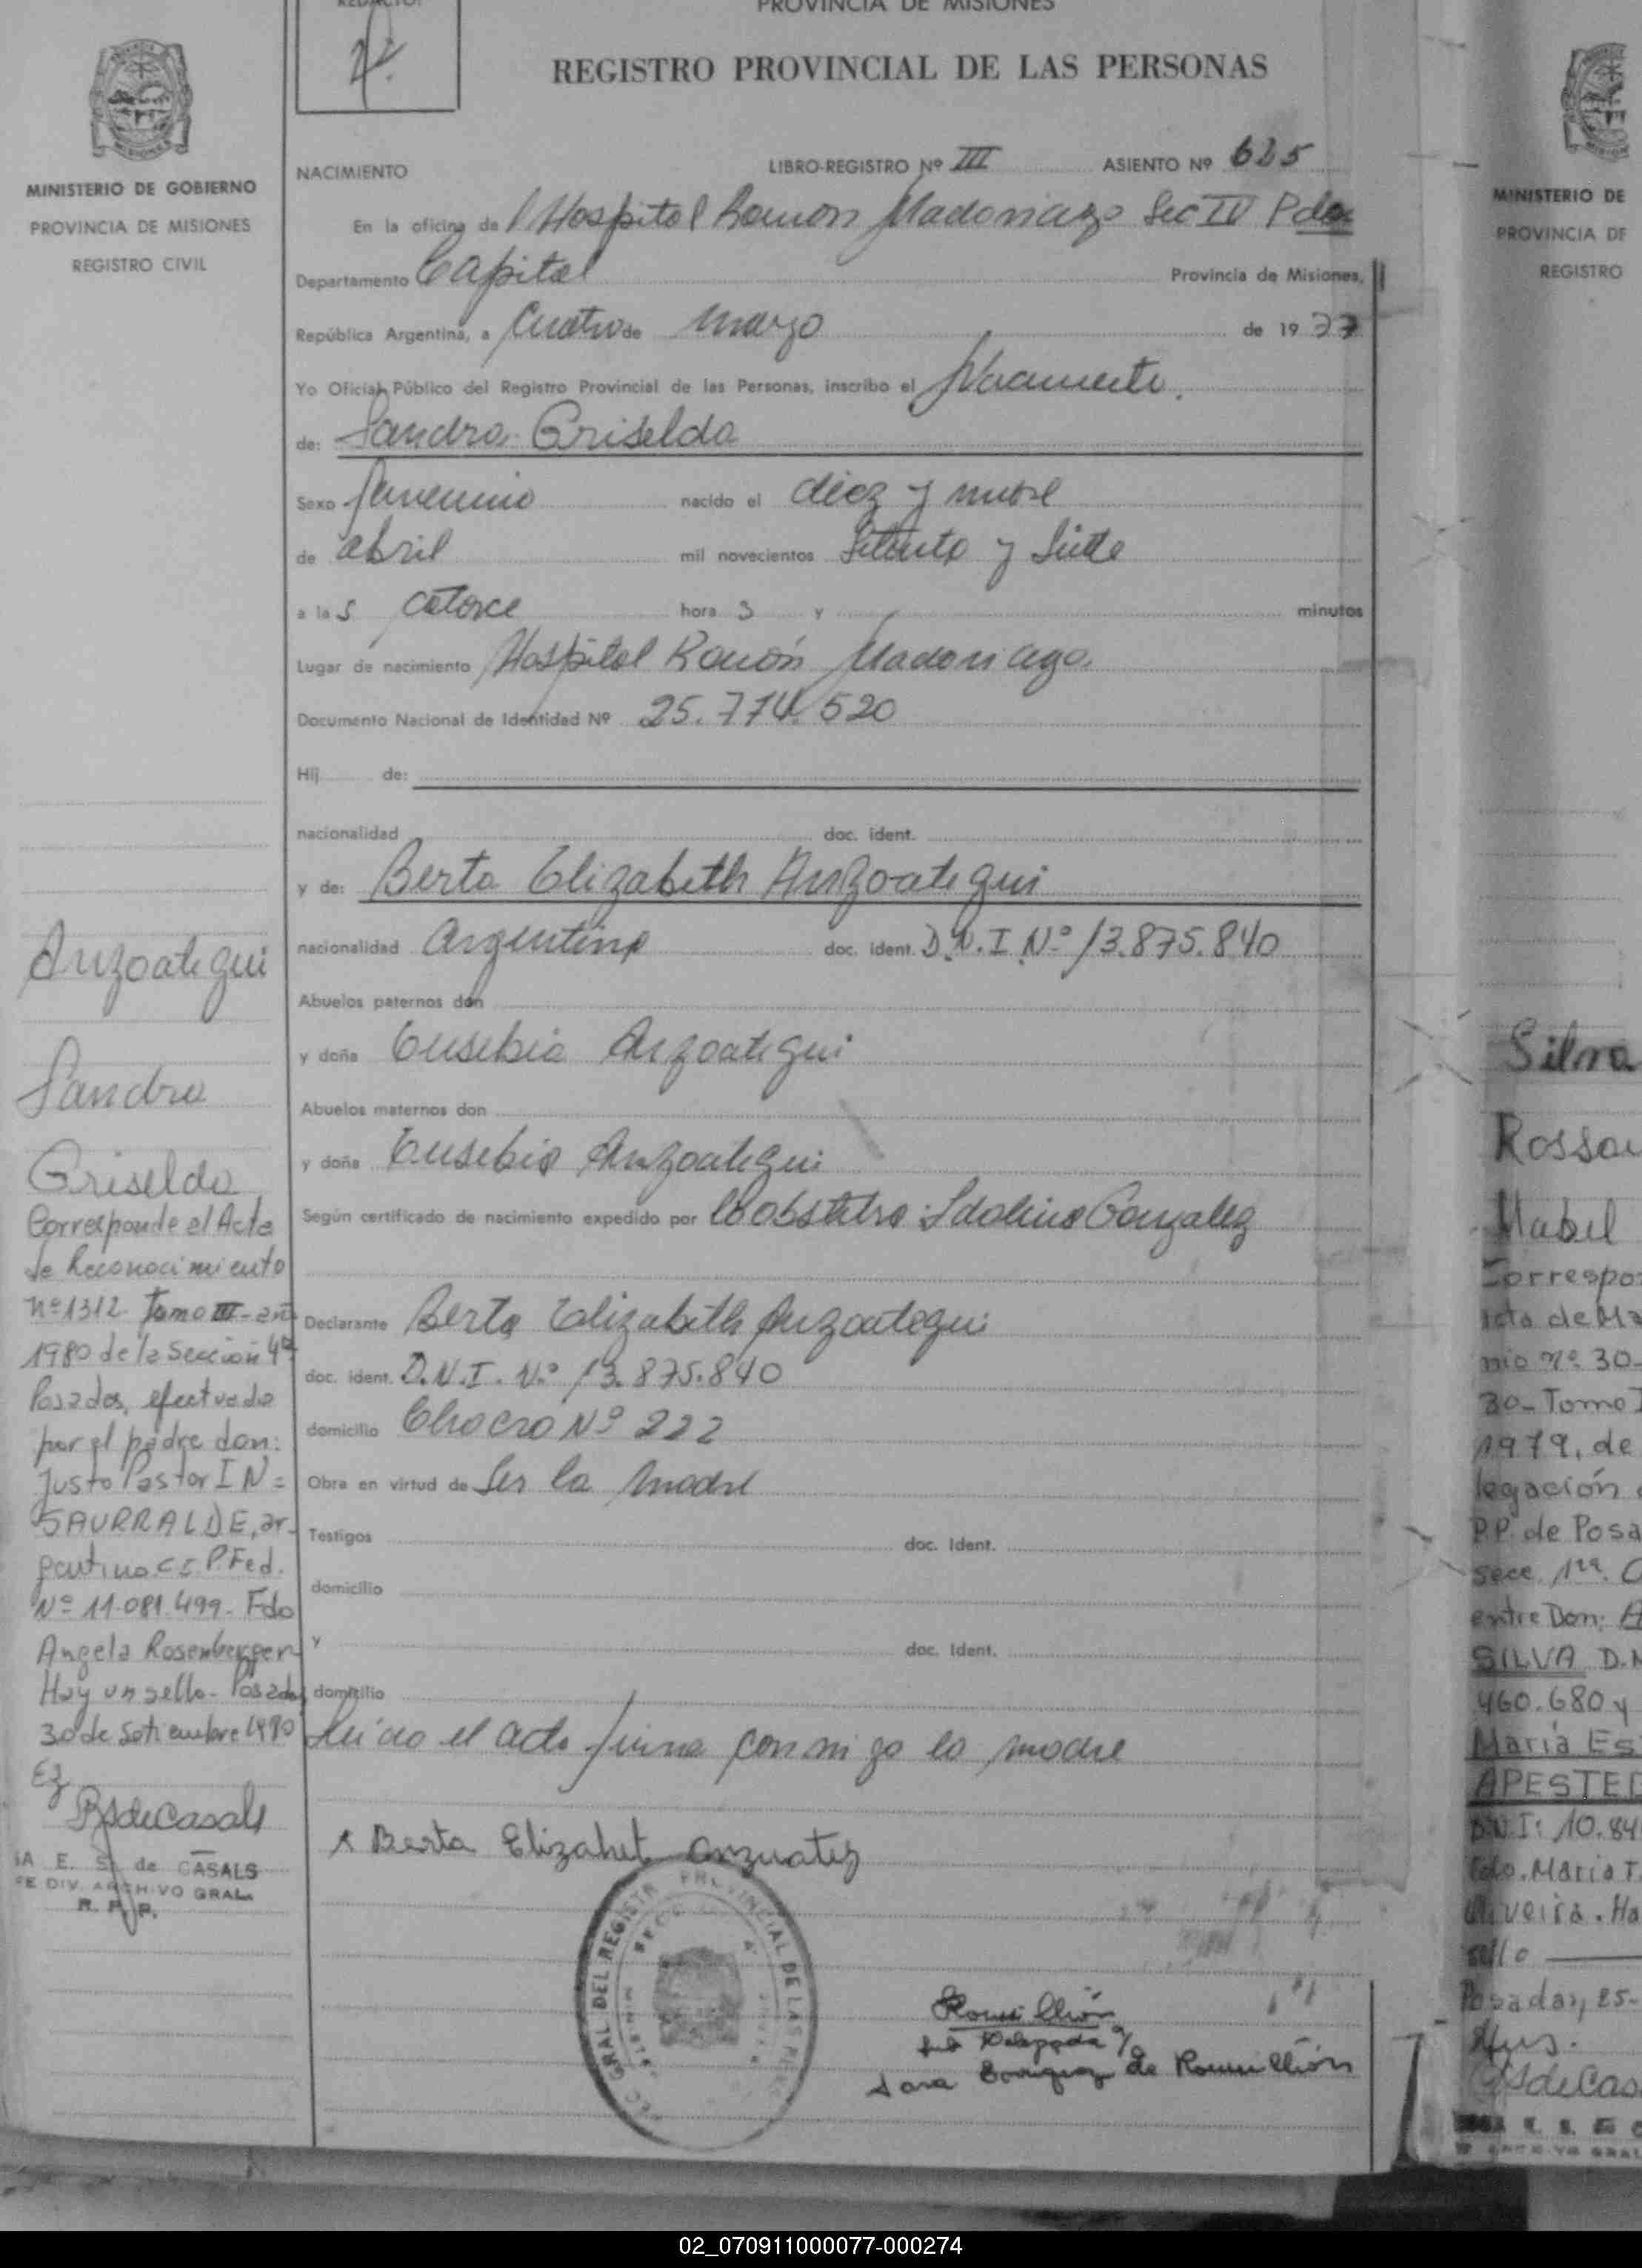 REDACTO:
PROVINCIA DE MISIONES
REGISTRO PROVINCIAL DE LAS PERSONAS
MINISTERIO DE GOBIERNO
PROVINCIA DE MISIONES
REGISTRO CIVIL
NACIMIENTO LIBRO-REGISTRO Nº III ASIENTO Nº 625
En la oficina de Hospital Ramon Madoriaga Sec IV Pdas
Departamento Capital Provincia de Misiones,
República Argentina, a Cuatro de Marzo de 1977
Yo Oficial Público del Registro Provincial de las Personas, inscribo el Nacimiento.
de: Sandra Griselda
Sexo femenino nacido el diez y nueve
de abril mil novecientos Setenta y Siete
a las catorce hora s y minutos
Lugar de nacimiento Hospital Ramón Madoriaga
Documento Nacional de Identidad Nº 25.774.520
Hij de:
nacionalidad doc. ident.
y de: Berta Elizabeth Anzoategui
nacionalidad Argentina doc. ident. D.N.I Nº 13.875.840
Abuelos paternos don
y doña Eusebia Anzoategui
Abuelos maternos don
y doña Eusebia Anzoategui
Según certificado de nacimiento expedido por la obstetra Idolina Gonzalez
Declarante Berta Elizabeth Anzoategui
doc. ident. D.N.I. Nº 13.875.840
domicilio Chacra Nº 222
Obra en virtud de Ser la madre
Testigos doc. Ident.
domicilio
y doc. Ident.
domicilio
Leido el acta firma conmigo la madre
Berta Elizabet anzuateg
GRAL DEL REGISTR PROVINCIAL DE LAS PE
Romillión
Sub Delegada
Sara de Romillión
Anzoategui
Sandra
Griselda
Corresponde el Acta
de Reconocimiento
nº 1312 Tomo III-año
1980 de la Sección 4ª
Posadas, efectuada
por el padre don:
Justo Pastor IN=
SAURRALDE, ar-
gentino C.I. P. Fed.
Nº 11.081.499. Fdo
Angela Rosenberger
Hay un sello. Posadas
30 de Setiembre 1980
Ez
BSdeCasals
SA E. S. de CASALS
FE DIV. ARCHIVO GRAL.
R. P. P.
MINISTERIO DE
PROVINCIA DE
REGISTRO
Silva
Rossa
Mabel
Correspo
acta de Ma
nio nº 30-
30- Tomo I
1979, de
legación
P.P. de Posa
secc. 1ra. C
entre Don: A
SILVA D.N
460.680 y
Maria Es
APESTEG
D.N.I: 10.84
Fdo. Maria T.
Oliveira. Ha
sello
Posadas, 25-
SdeCas
02_070911000077-000274